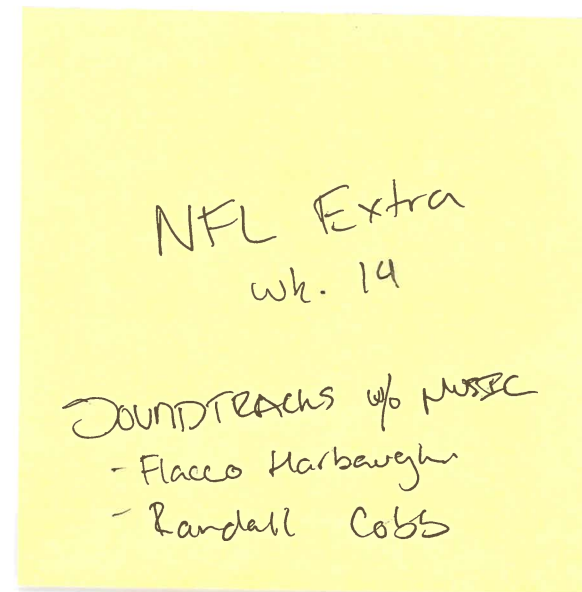 NFL Extra
wk. 14
SOUNDTRACKS w/o MUSIC
- Flacco Harbaugh
- Randall Cobb